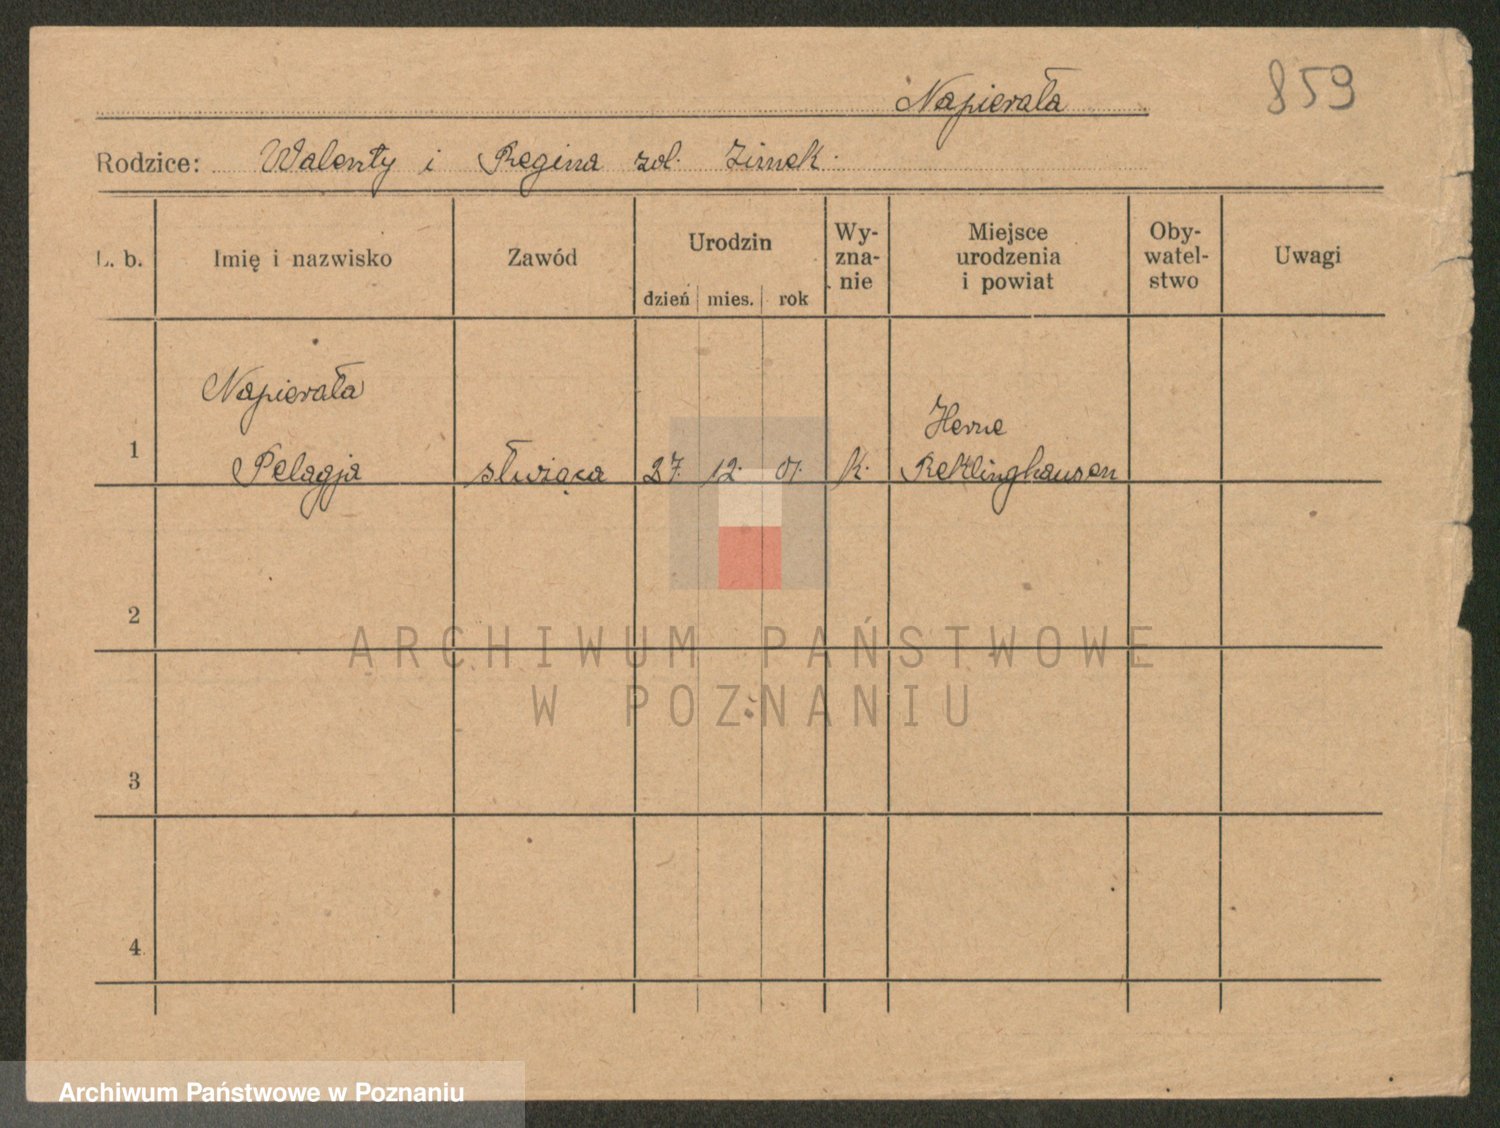 859
Napierała
Rodzice: Walenty i Regina zd. Zimek.
L. b.
Imię i nazwisko
Zawód
Urodzin
dzień mies. rok
Wy-
zna-
nie
Miejsce
urodzenia
i powiat
Oby-
watel-
stwo
Uwagi
Napierała
Herne
1 Pelagja służąca 27. 12. 01. k. Reklinghausen
2
ARCHIWUM PAŃSTWOWE
W POZNANIU
3
4
Archiwum Państwowe w Poznaniu